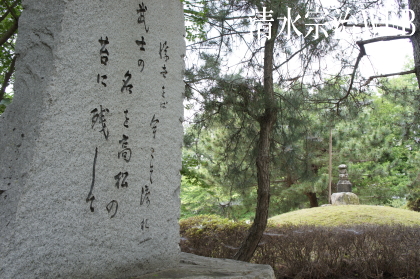 清水宗
浮世をば今こそ渡れ
武士の名を高松の
苔に残して